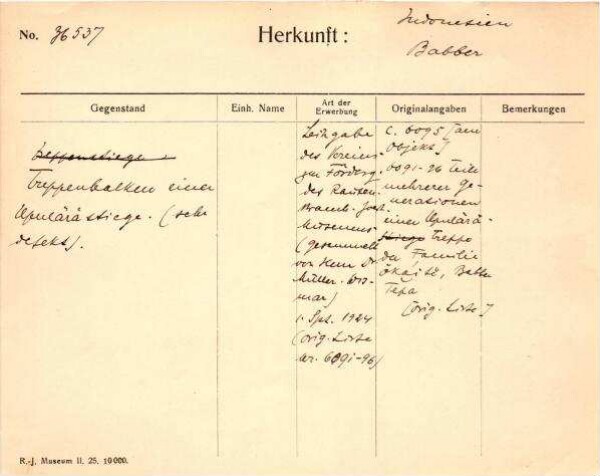 No. 36537
Herkunft:
Indonesien
Babber
Gegenstand
Einh. Name
Art der
Erwerbung
Originalangaben
Bemerkungen
Treppenstiege
Treppenbalken einer
Upulärästiege. (sehr
defekt).
Leihgabe
des Vereins
zur Förderg
des Rauten-
strauch-Joest-
Museums
(gesammelt
von Herrn Dr
Müller-Wis-
mar)
1. Spt. 1924
(orig. Liste
Nr. 6091-96)
C. 6095 [am
Objekt]
6091-96 Teile
mehrerer Ge-
nerationen
einer Upulärä-
stiege Treppe
der Familie
Tepa
[orig. Liste]
R.-J. Museum II. 25. 10000.